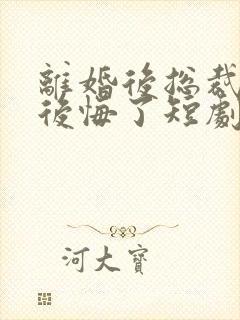 離婚後總裁
後悔了短劇
河大寶